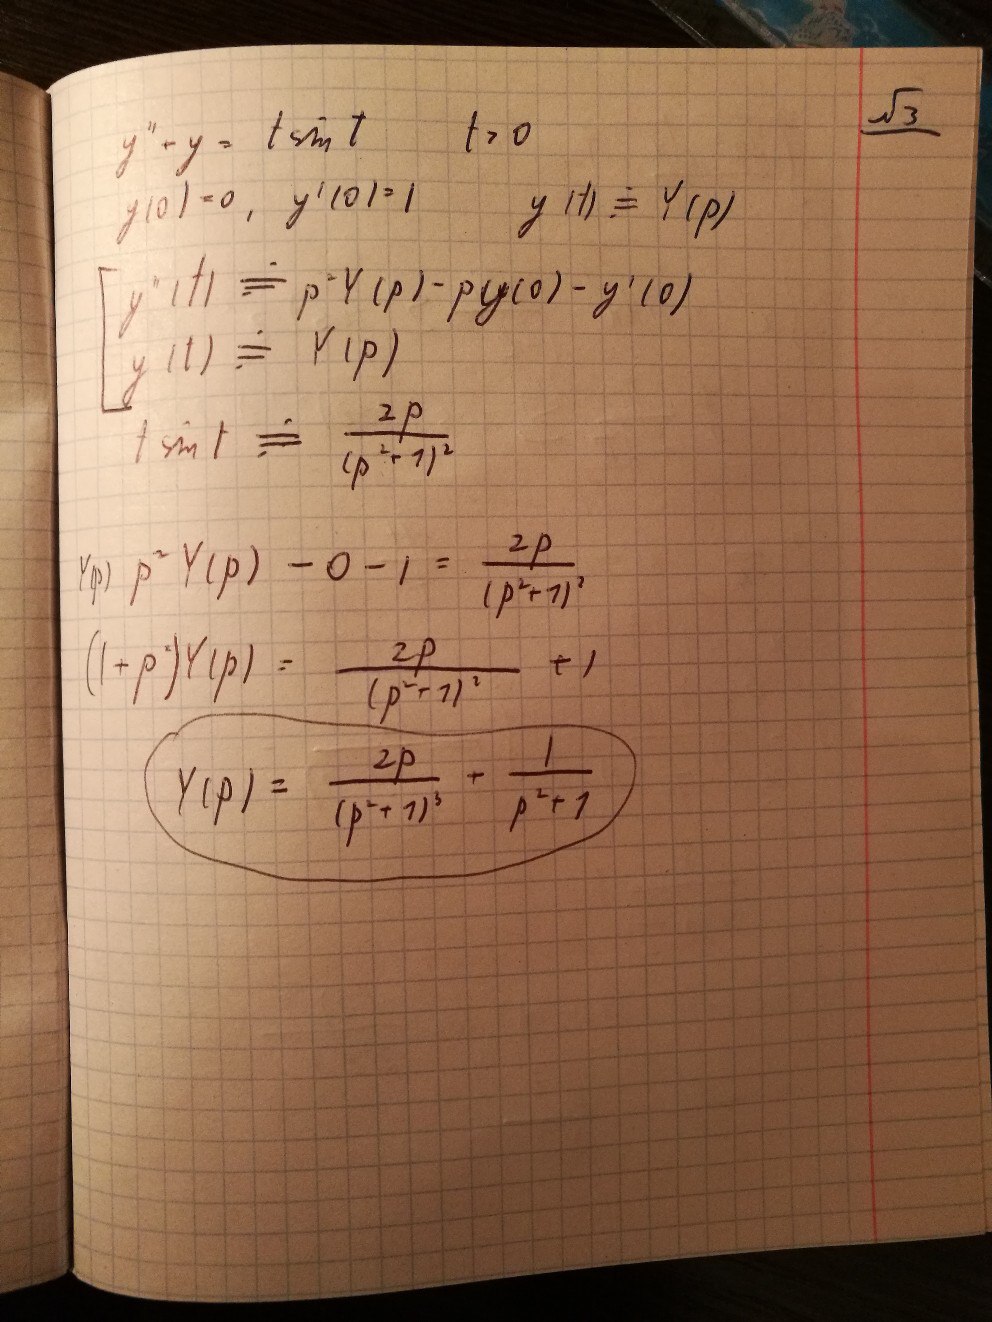 √3
y'' + y = t sin t t > 0
y(0) = 0, y'(0) = 1 y(t) ≓ Y(p)
y''(t) ≓ p²Y(p) - py(0) - y'(0)
y(t) ≓ Y(p)
t sin t ≓ 2p/(p²+1)²
Y(p) p² Y(p) - 0 - 1 = 2p/(p²+1)²
(1+p²)Y(p) = 2p/(p²+1)² + 1
Y(p) = 2p/(p²+1)³ + 1/(p²+1)